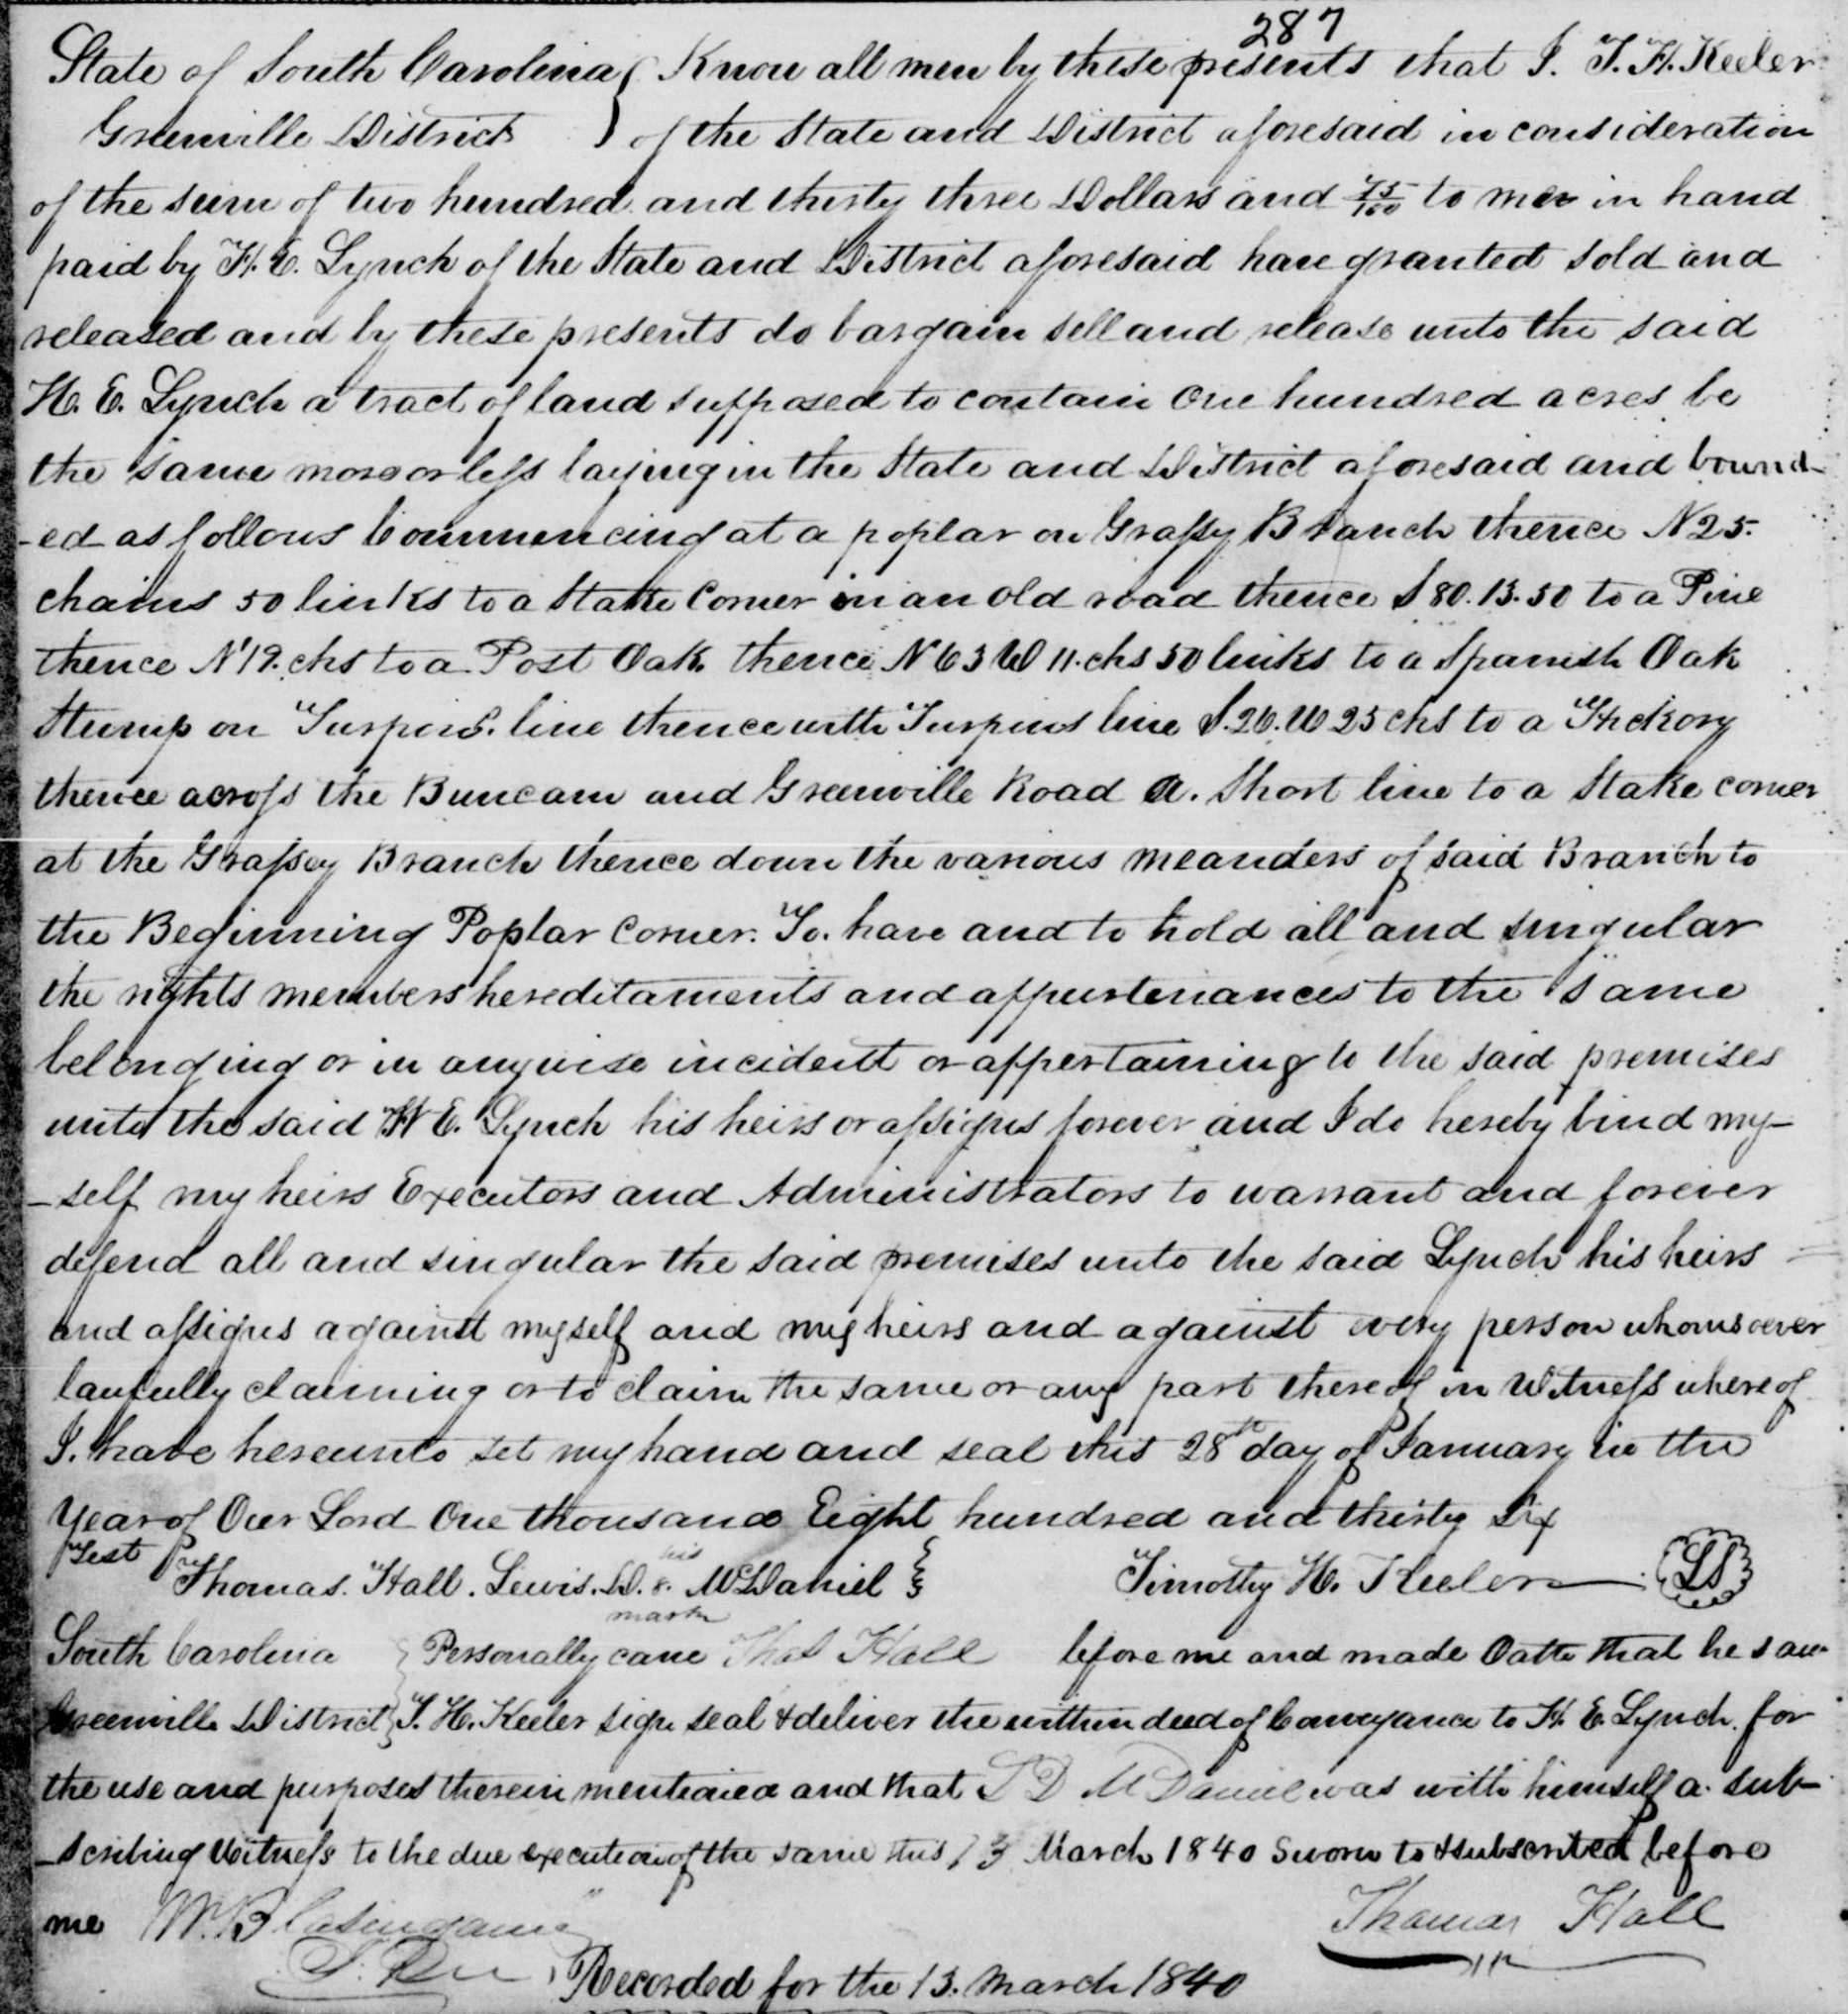 287
State of South Carolina } Know all men by these presents that I. T. H. Keeler
Greenville District } of the State and District aforesaid in consideration
of the sum of two hundred and thirty three Dollars and 75/100 to me in hand
paid by H. E. Lynch of the State and District aforesaid have granted sold and
released and by these presents do bargain sell and release unto the said
H. E. Lynch a tract of land supposed to contain One hundred acres be
the same more or less laying in the State and District aforesaid and bound-
-ed as follows Commencing at a poplar on Grassy Branch thence N 25.
chains 50 links to a Stake Corner in an old road thence S 80. 13. 50 to a Pine
thence N 19. chs to a Post Oak thence N 63 W 11. chs 50 links to a Spanish Oak
Stump on Turpins. line thence with Turpins line S. 26. W 25 chs to a Hickory
thence across the Buncam and Greenville Road A. Short line to a Stake corner
at the Grassey Branch thence down the various meanders of said Branch to
the Beginning Poplar Corner. To. have and to hold all and singular
the rights members hereditaments and appurtenances to the same
belonging or in anywise incident or appertaining to the said premises
unto the said H E. Lynch his heirs or assigns forever and I do hereby bind my-
-self my heirs Executors and Administrators to warrant and forever
defend all and singular the said premises unto the said Lynch his heirs
and assigns against myself and my heirs and against every person whomsoever
lawfully claiming or to claim the same or any part thereof in Witness whereof
I. have hereunto set my hand and seal this 28th day of January in the
Year of Our Lord One thousand Eight hundred and thirty Six
Test
Thomas. Hall. Lewis. D. his x mark McDaniel } Timothy H. Keeler (LS)
South Carolina } Personally came Thos Hall before me and made Oath that he saw
Greenville District } T. H. Keeler sign seal & deliver the within deed of Conveyance to H. E. Lynch. for
the use and purposes therein mentioned and that L D McDaniel was with himself a. sub-
-scribing Witness to the due execution of the same this 13 March 1840 Sworn to & subscribed before
me W. Blasingame Thomas Hall
Recorded for the 13. March 1840